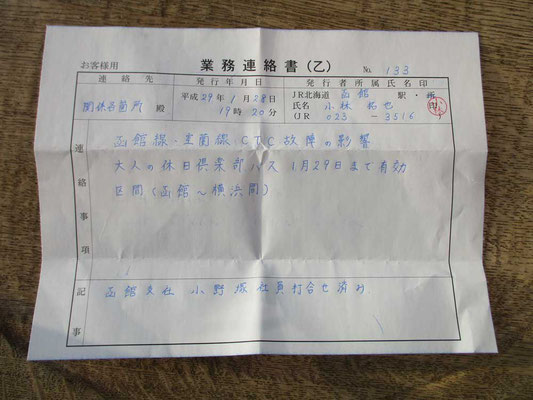 お客様用 業務連絡書(乙) No. 133
連絡先 発行年月日 発行者所属氏名印
関係各箇所 殿
平成29年1月28日
19時20分
JR北海道 函館 駅・所
氏名 小林 拓也 印
(JR 023 - 3516)
連絡事項
函館線・室蘭線・CTC故障の影響
大人の休日倶楽部パス 1月29日まで有効
区間(函館~横浜間)
記事
函館支社 小野塚社員打合せ済み